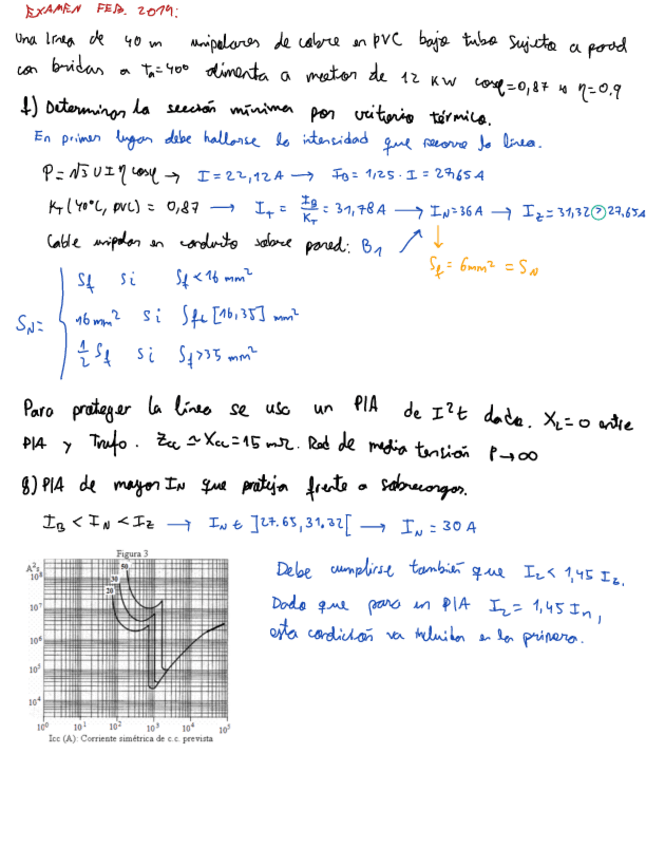 EXAMEN FEB. 2019:
Una línea de 40 m unipolares de cobre en PVC bajo tubo sujeta a pared
con bridas a Ta=40º alimenta a motor de 12 KW cosφ=0,87 η=0.9
f) Determinar la sección mínima por criterio térmico.
En primer lugar debe hallarse la intensidad que recorre la línea.
P=√3 U I η cosφ → I=22,12A → I_B= 1,25·I = 27,65A
K_T(40ºC, PVC) = 0,87 → I_T = I_B/K_T = 31,78A → I_N=36A → I_Z=31,32>27,65A
Cable unipolar en conducto sobre pared: B1
S_f = 6mm² = S_N
S_N=
S_f si S_f<16 mm²
16mm² si S_f∈[16,35] mm²
1/2 S_f si S_f>35 mm²
Para proteger la línea se usa un PIA de I²t dada. X_L=0 entre
PIA y Trafo. Zcc ≃ Xcc=15mΩ. Red de media tensión P→∞
g) PIA de mayor I_N que proteja frente a sobrecargas.
I_B < I_N < I_Z → I_N ∈ ]27.65,31,32[ → I_N = 30A
Figura 3
A²s
10⁸
10⁷
10⁶
10⁵
10⁴
50
30
20
10⁰ 10¹ 10² 10³ 10⁴ 10⁵
Icc (A): Corriente simétrica de c.c. prevista
Debe cumplirse también que I₂< 1,45 I_Z.
Dado que para un PIA I₂= 1,45 In,
esta condición va incluida en la primera.